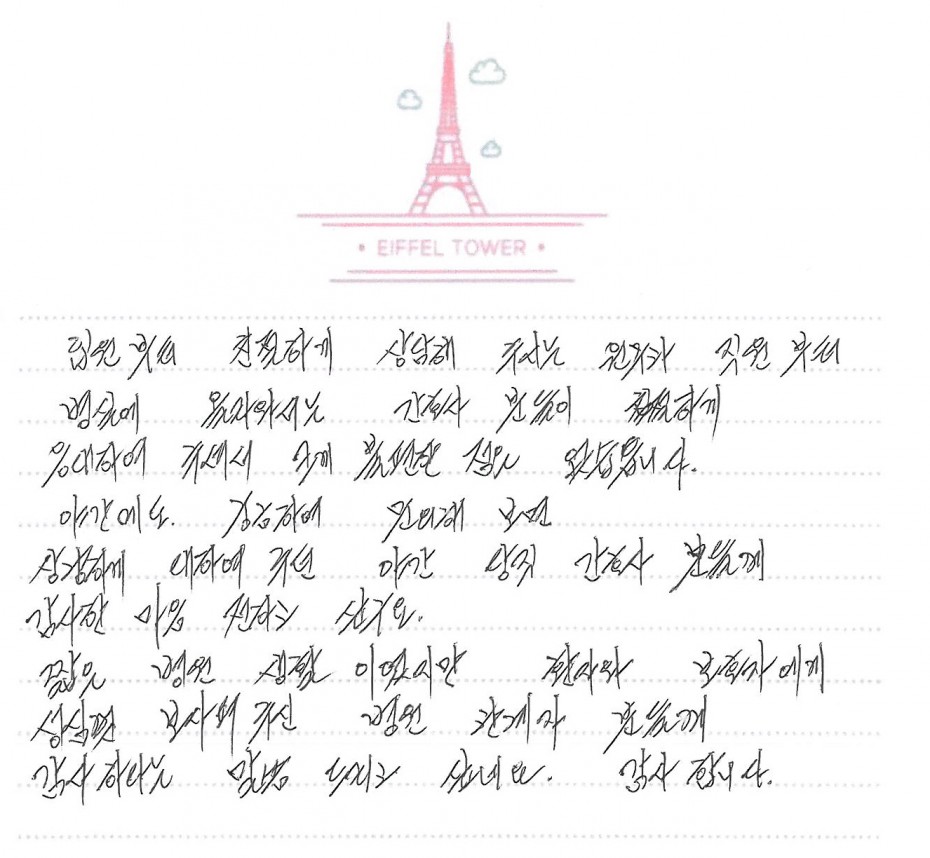 • EIFFEL TOWER •
입원부터 친절하게 상담해 주시는 원무과 직원 부터
병실에 올라와서는 간호사 분들이 친절하게
응대하여 주셔서 크게 불편한 점은 없었습니다.
야간에도. 궁금하여 문의해 보면
상냥하게 대하여 주던 야간 당직 간호사 분들께
감사한 마음 전하고 싶구요.
짧은 병원 생활 이였지만 환자와 보호자에게
성심껏 보살펴 주신 병원 관계자 분들께
감사하다는 말씀 드리고 싶네요. 감사 합니다.